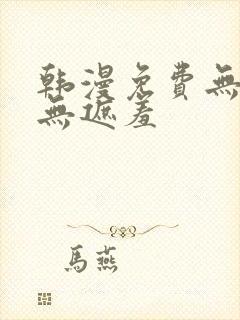 韩漫免费無
無遮羞
馬燕